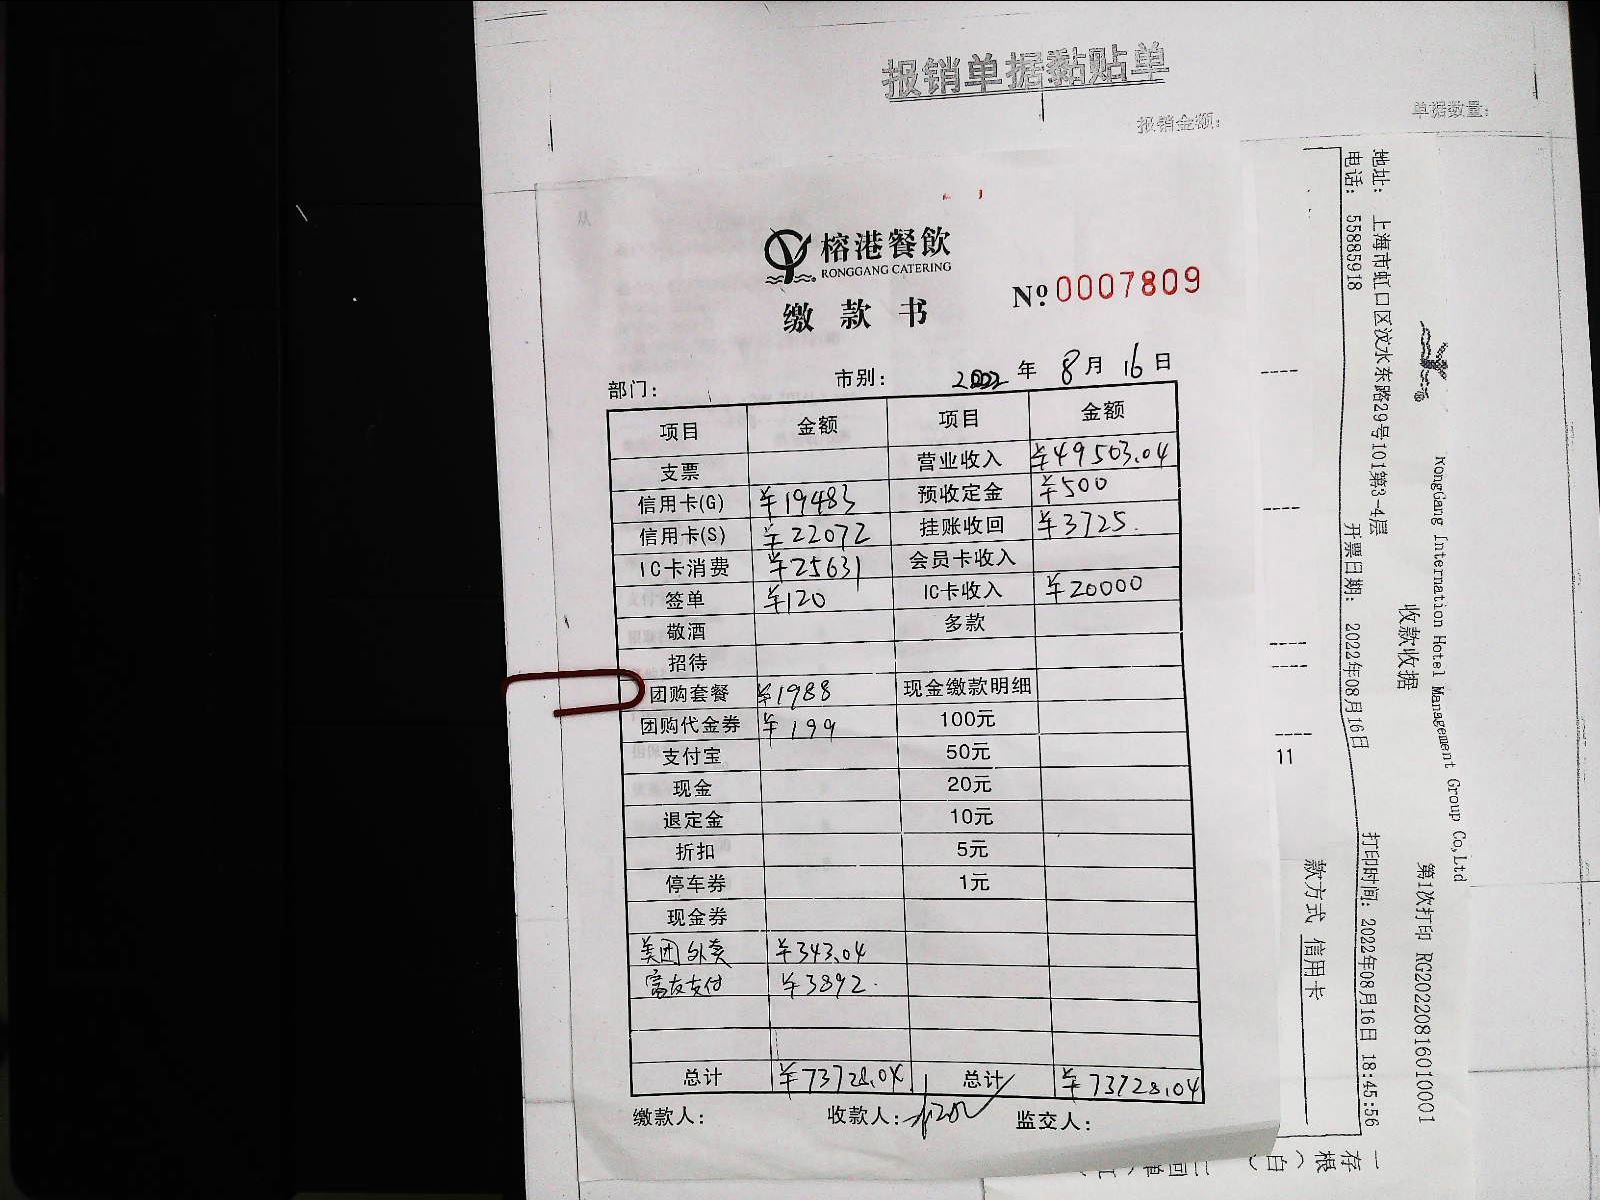 报销单据黏贴单
报销金额:
单据数量:
榕港餐飲
RONGGANG CATERING
缴款书
№0007809
部门:
市别:
2022年8月16日
项目 金额 项目 金额
支票 营业收入 ¥49503.04
信用卡(G) ¥19483 预收定金 ¥500
信用卡(S) ¥22072 挂账收回 ¥3725.
IC卡消费 ¥25631 会员卡收入
签单 ¥120 IC卡收入 ¥20000
敬酒 多款
招待
团购套餐 ¥1988 现金缴款明细
团购代金券 ¥199 100元
支付宝 50元
现金 20元
退定金 10元
折扣 5元
停车券 1元
现金券
美团外卖 ¥343.04
富友支付 ¥3892.
总计 ¥73728.04 总计 ¥73728.04
缴款人: 收款人: 监交人:
RongGang International Hotel Management Group Co,Ltd
收款收据
第1次打印 RG20220816010001
地址: 上海市虹口区汶水东路29号101第3-4层
电话: 55885918
开票日期: 2022年08月16日
打印时间: 2022年08月16日 18:45:56
款方式 信用卡
11
一存根(白)